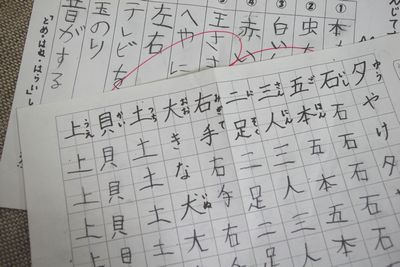 んじて
①本
②虫
③白い
④赤い
王さ
へやに
左右
テレビを
玉のり
音がする
夕やけ夕
ゆう
石石石石石石
いし
五本五本五本
ごほん
三人三人三人
さんにん
二足二足二足
にそく
右手右手右
みぎて
大きな犬大
おおいぬ
土土土土土
つち
貝貝貝貝貝
かい
上上上上上
うえ